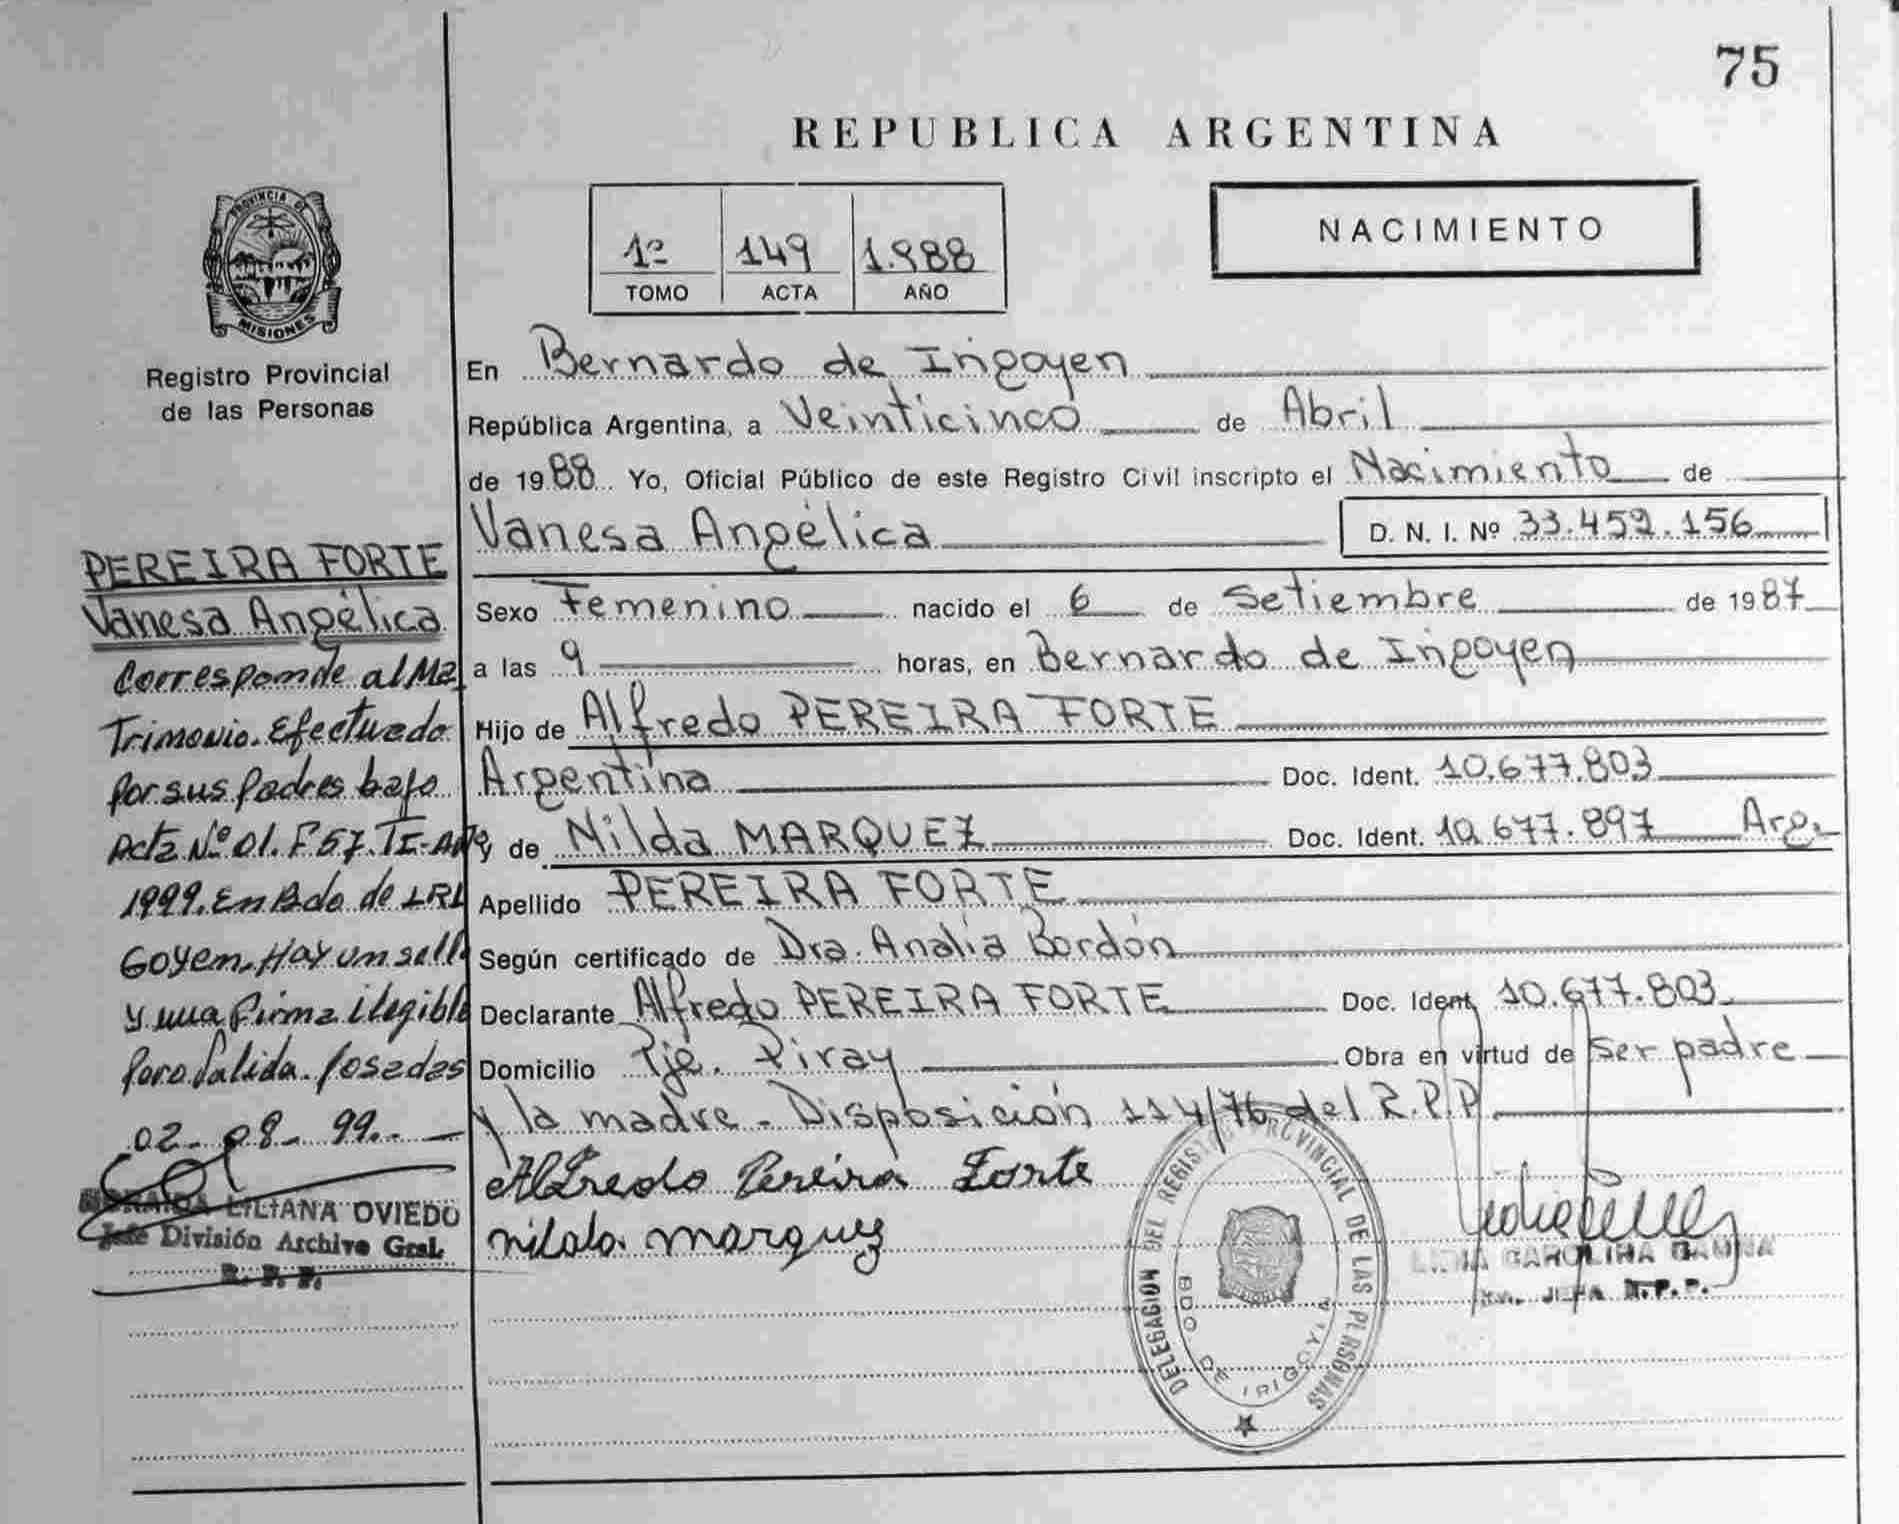 75
REPUBLICA ARGENTINA
PROVINCIA DE
MISIONES
Registro Provincial
de las Personas
1º 149 1.988
TOMO ACTA AÑO
NACIMIENTO
En Bernardo de Irigoyen
República Argentina, a Veinticinco de Abril
de 1988 Yo, Oficial Público de este Registro Civil inscripto el Nacimiento de
Vanesa Angélica D. N. I. Nº 33.459.156
Sexo Femenino nacido el 6 de Setiembre de 1987
a las 9 horas, en Bernardo de Irigoyen
Hijo de Alfredo PEREIRA FORTE
Argentina Doc. Ident. 10.677.803
y de Nilda MARQUEZ Doc. Ident. 10.677.897 Arg.
Apellido PEREIRA FORTE
Según certificado de Dra. Analía Bordón
Declarante Alfredo PEREIRA FORTE Doc. Ident. 10.677.803
Domicilio Pje. Piray Obra en virtud de ser padre
y la madre - Disposición 114/76 del R.P.P
Alfredo Pereira Forte
nilda marquez
PEREIRA FORTE
Vanesa Angélica
Corresponde al Ma
Trimonio. Efectuado
por sus Padres bajo
Acta Nº 01. F 57. TI-Año
1999. En Bdo de IRI
Goyen. Hay un sello
y una firma ilegible
Para Valida. Posadas
02-08-99.-
LILIANA OVIEDO
Jefe División Archivo Gral.
R. P. P.
DELEGACION DEL REGISTRO PROVINCIAL DE LAS PERSONAS
BDO. DE IRIGOYEN
LIDIA CAROLINA
JEFA R.P.P.